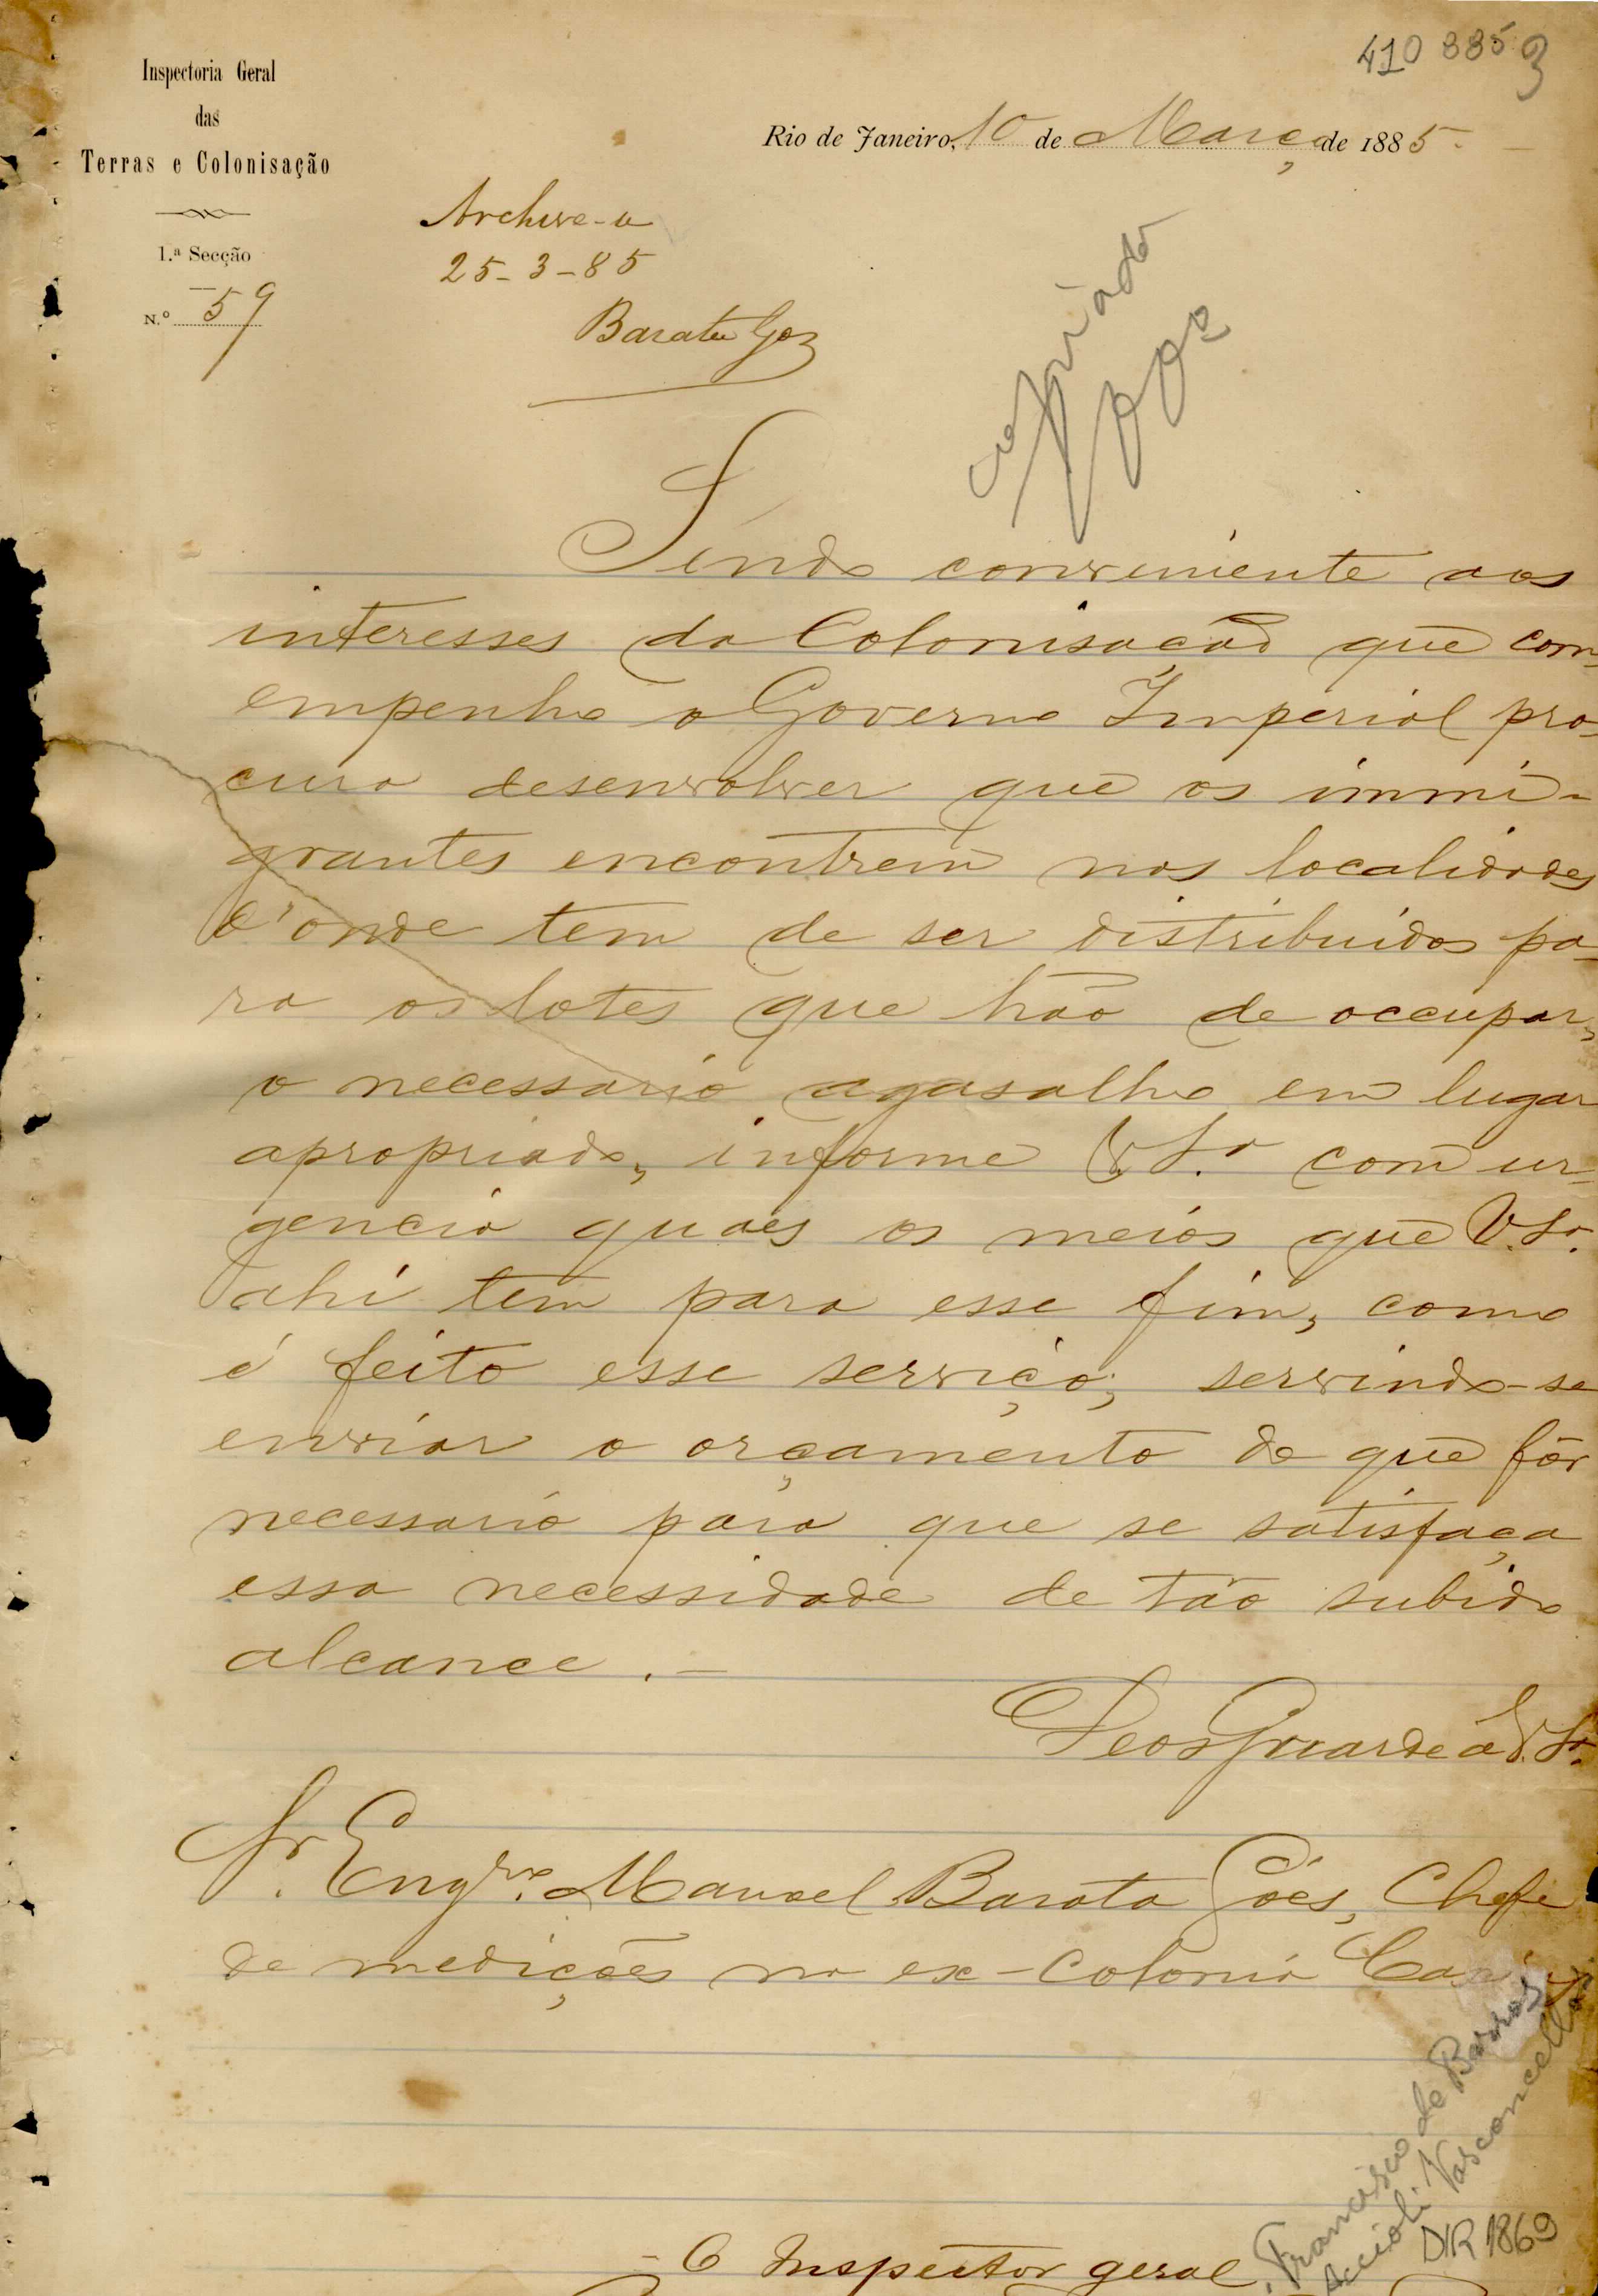 410 885 3
Inspectoria Geral
das
Terras e Colonisação
1.ª Secção
N.º 59
Rio de Janeiro, 10 de Março de 1885.
Archive-se
25-3-85
Barata Goz
copiado
Sendo conveniente aos
interesses da Colonisação que com
empenho o Governo Imperial pro-
cura desenvolver que os immi-
grantes encontrem nas localidades
d'onde tem de ser distribuidos pa-
ra os lotes que hão de occupar,
o necessario agasalho em lugar
apropriado, informe V. Sª com ur-
gencia quaes os meios que V. Sª.
ahi tem para esse fim, como
é feito esse serviço; servindo-se
enviar o orçamento do que fôr
necessario para que se satisfaça
essa necessidade de tão subido
alcance.-
Deos Guarde a V. Sª.
Sr. Engro. Manoel Barata Góes, Chefe
de medições na ex-colonia
O Inspector geral
Francisco de Barros
Accioli Vasconcellos
DIR 1869